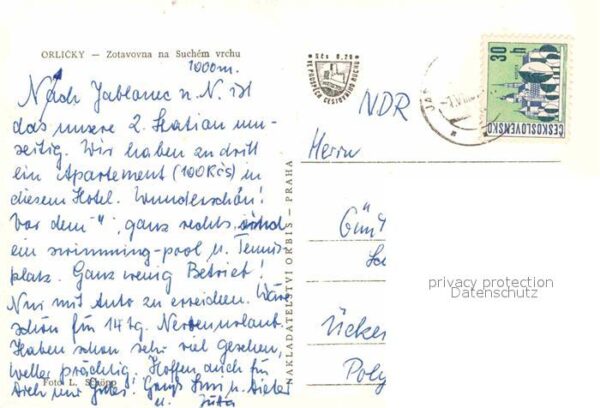 ORLIČKY — Zotavovna na Suchém vrchu
1000m.
Nach Jablonec n. N. ist
das unsere 2. Station um-
seitig. Wir haben zu dritt
ein Apartement (100 Kčs) in
diesem Hotel. Wunderschön!
Vor dem "4", ganz rechts, sind
ein swimming-pool u. Tennis
platz. Ganz wenig Betrieb!
Nur mit Auto zu erreichen. Wäre
schön für 14 tg. Nervenurlaub.
Haben schon sehr viel gesehen,
Wetter prächtig. Hoffen, auch für
Euch nur Gutes! Gruß u. Dieter
u. Jutta
Foto L.
NAKLADATELSTVÍ ORBIS — PRAHA
Kčs 0,20
VE PROSPĚCH CESTOVNÍHO RUCHU
30 h
ČESKOSLOVENSKO
NDR
Herrn
Gün
Ücker
Poly
privacy protection
Datenschutz